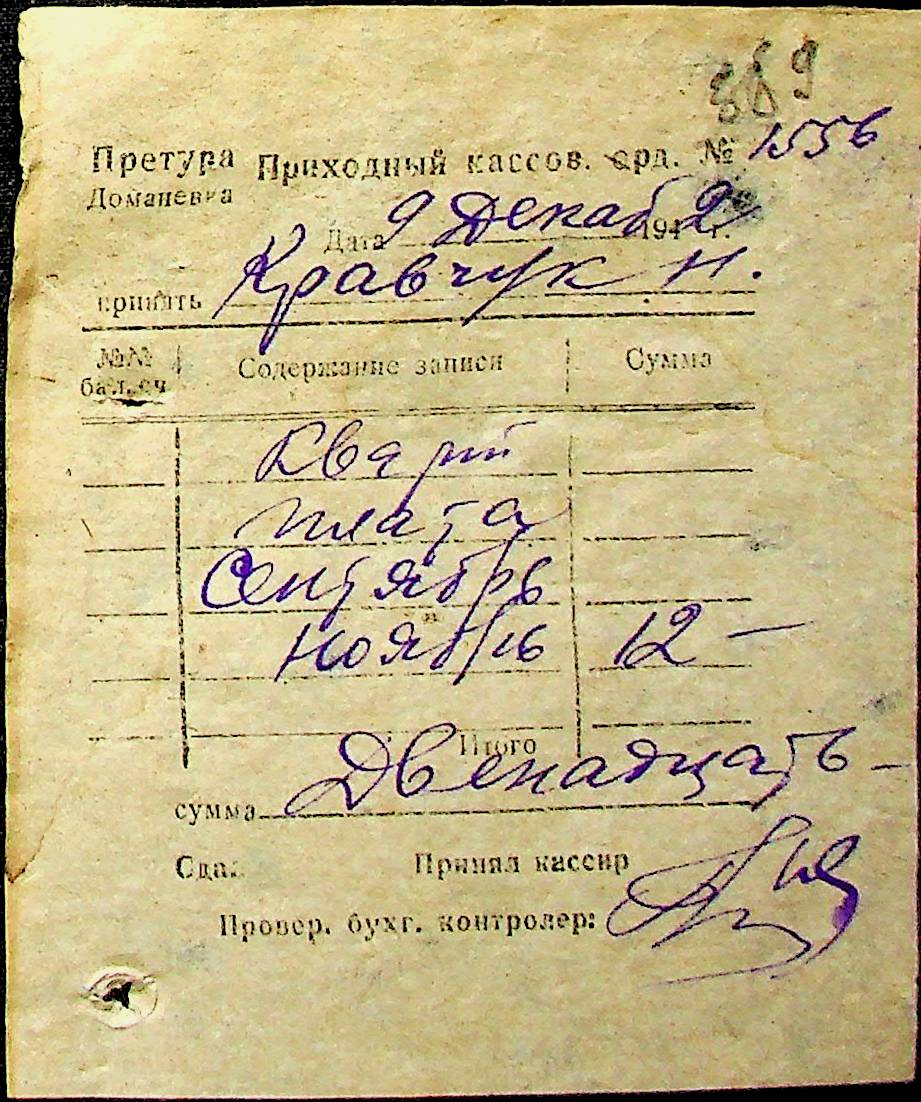 869
Претура Приходный кассов. орд. № 1556
Доманевка
Дата 9 Декаб 1942 г.
принять Кравчук Н.
№№ бал. сч Содержание записи Сумма
Кварт
плата
Сентябрь
Ноябрь 12 —
Итого
сумма Двенадцать —
Сдал Принял кассир
Провер. бухг. контролер: